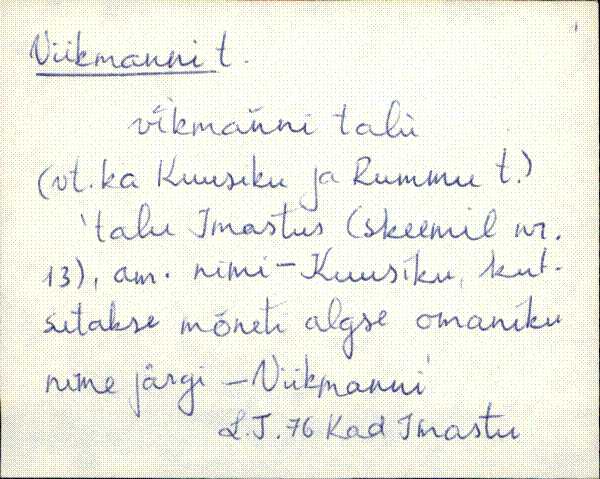 Viikmanni t.
vīkmańni talu
(vt. ka Kuusiku ja Rummu t.)
'talu Imastus (skeemil nr.
13), am. nimi - Kuusiku, kut-
sutakse mõneti algse omaniku
nime järgi - Viikmanni'
L.J. 76 Kad Imastu